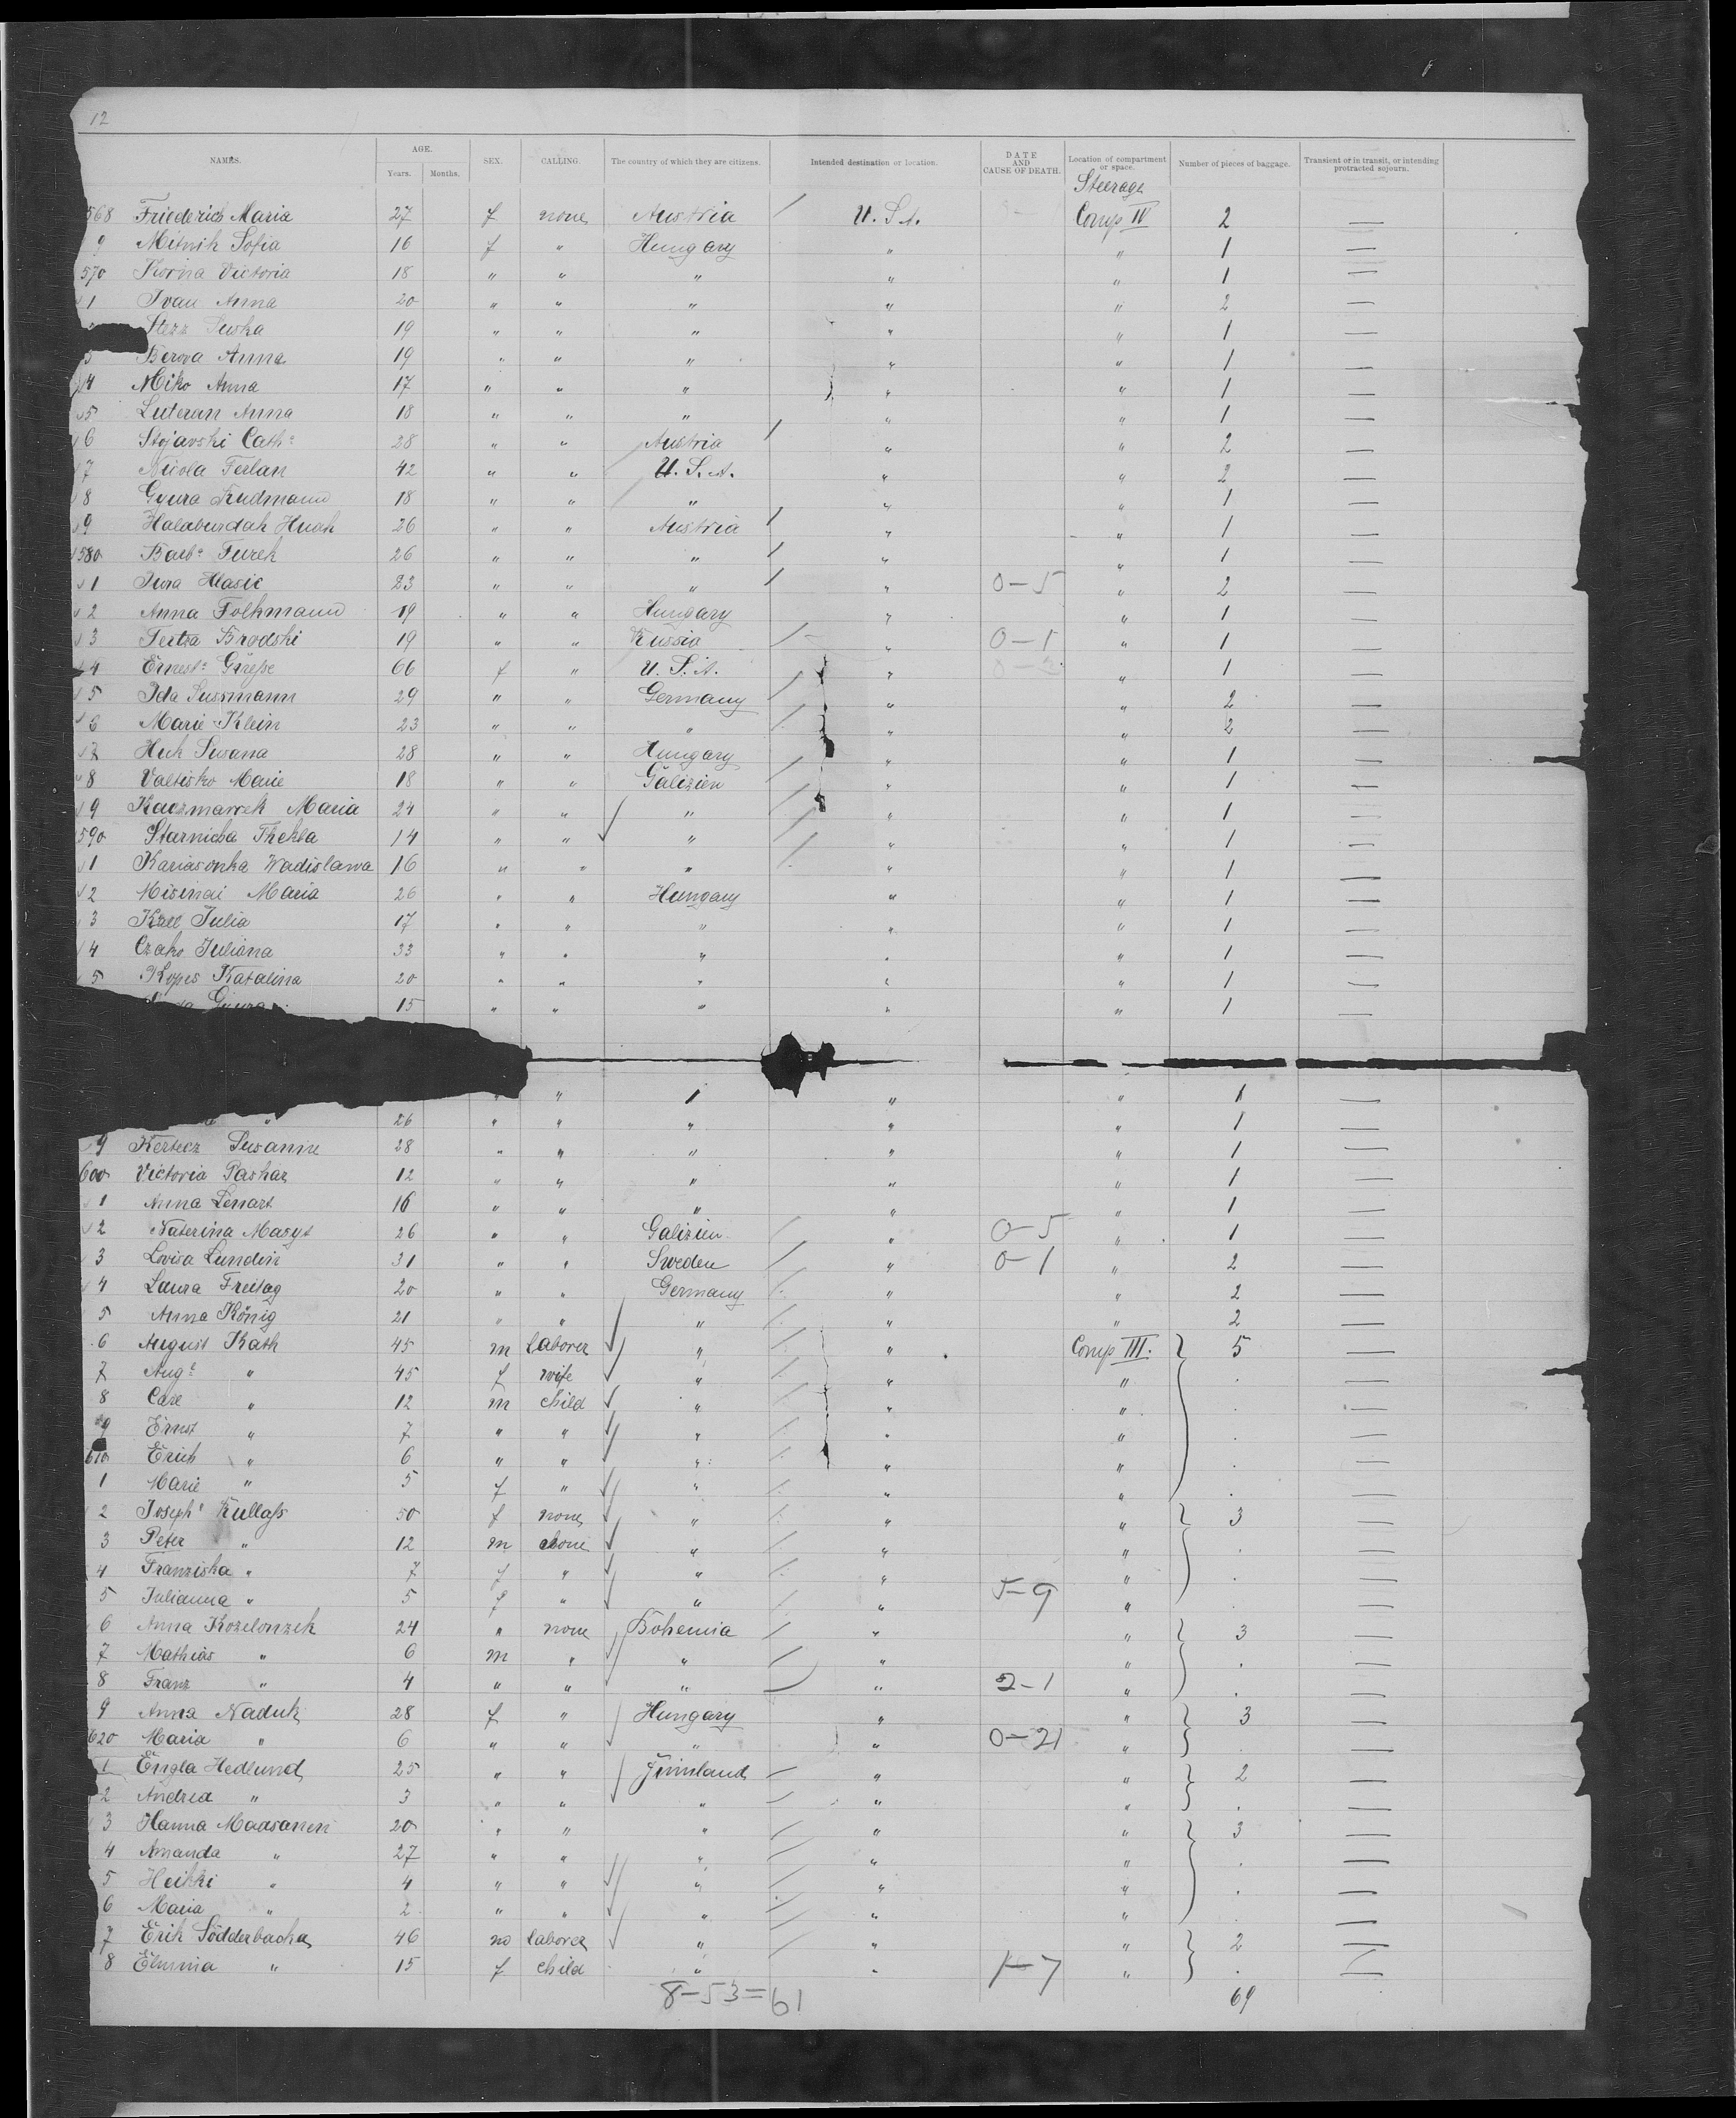 12
NAMES. AGE. Years. Months. SEX. CALLING. The country of which they are citizens. Intended destination or location. DATE AND CAUSE OF DEATH. Location of compartment or space. Number of pieces of baggage. Transient or in transit, or intending protracted sojourn.
Steerage
568 Friederich Maria 27 f none Austria / U. S. A. Comp IV 2 —
9 Mitnik Sofia 16 f " Hungary " " 1 —
570 Korina Victoria 18 " " " " " 1 —
1 Ivan Anna 20 " " " " " 2 —
Stezz Suska 19 " " " " " 1 —
3 Berova Anna 19 " " " " " 1 —
4 Miko Anna 17 " " " " " 1 —
5 Luteran Anna 18 " " " " " 1 —
6 Stojavski Cath: 28 " " Austria / " " 2 —
7 Nicola Ferlan 42 " " U. S. A. " " 2 —
8 Gyura Rudmann 18 " " " " " 1 —
9 Halaburdah Huah 26 " " Austria / " " 1 —
580 Barb: Turek 26 " " " / " " 1 —
1 Jura Hlasic 23 " " " / " 0-5 " 2 —
2 Anna Folkmann 19 " " Hungary " " 1 —
3 Brodski 19 " " Russia / " 0-1 " 1 —
4 Ernest: 66 f " U. S. A. " " 1 —
5 Ida Sussmann 29 " " Germany / " " 2 —
6 Marie Klein 23 " " " / " " 2 —
7 Huk Susana 28 " " Hungary " " 1 —
8 Valtisko Marie 18 " " Galizien / " " 1 —
9 Kaczmarrek Maria 24 " " " / " " 1 —
590 Starnicha Thekla 14 " " " / " " 1 —
1 Kariasonka Wadislawa 16 " " " / " " 1 —
2 Misinai Maria 26 " " Hungary " " 1 —
3 Kall Julia 17 " " " " " 1 —
4 Czako Juliana 33 " " " " " 1 —
5 Kopes Katalina 20 " " " " " 1 —
15 " " " " " 1 —
" " " " " 1 —
" 26 " " " " " 1 —
9 Kertecz Susanne 28 " " " " " 1 —
600 Victoria Pashaz 12 " " " " " 1 —
1 Anna Lenart 16 " " " " " 1 —
2 Naterina Masyt 26 " " Galizien / " 0-5 " 1 —
3 Lovisa Lundin 31 " " Sweden / " 0-1 " 2 —
4 Laura Freitag 20 " " Germany / " " 2 —
5 Anna König 21 " " " / " " 2 —
6 August Kath 45 m laborer " / " Comp III. 5 —
7 Aug: " 45 f wife " / " " . —
8 Carl " 12 m child " / " " . —
9 Ernst " 7 " " " / " " . —
610 Erich " 6 " " " / " " . —
1 Marie " 5 f " " / " " . —
2 Joseph: Kullass 50 f none " / " " 3 —
3 Peter " 12 m " / " " . —
4 Franziska " 7 f " " / " " . —
5 Julianna " 5 f " " / " 5-9 " . —
6 Anna Kozelonzek 24 " none Bohemia / " " 3 —
7 Mathias " 6 m " " / " " . —
8 Franz " 4 " " " / " 2-1 " . —
9 Anna Naduk 28 f " Hungary " " 3 —
620 Maria " 6 " " " " 0-21 " . —
1 Engla Hedlund 25 " " Finnland / " " 2 —
2 Andrea " 3 " " " / " " . —
3 Hanna Maasanen 20 " " " / " " 3 —
4 Amanda " 27 " " " / " " . —
5 Heikki " 4 " " " / " " . —
6 Maria " 2 " " " / " " . —
7 Erik Södderbacka 46 m laborer " / " " 2 —
8 Elmina " 15 f child " / " 1-7 " . —
8-53=61 69